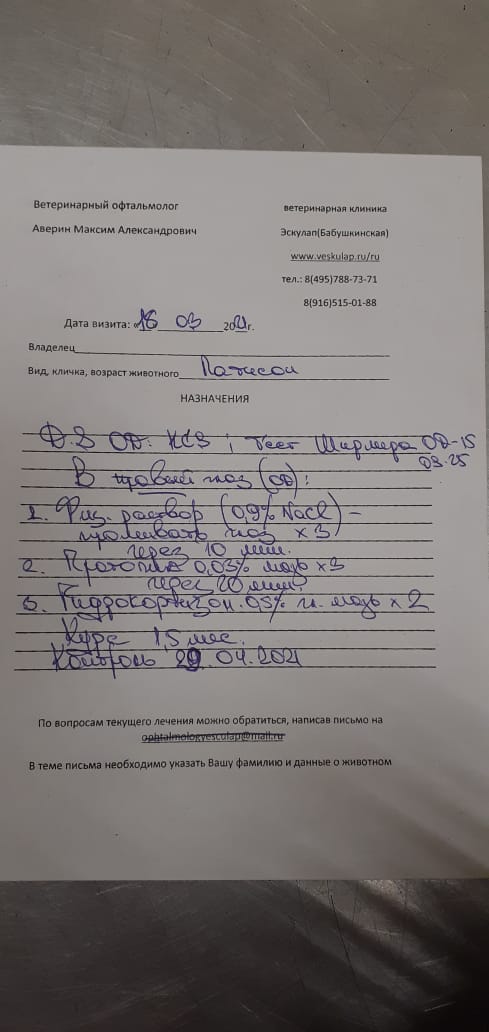 Ветеринарный офтальмолог
ветеринарная клиника
Аверин Максим Александрович
Эскулап(Бабушкинская)
www.veskulap.ru/ru
тел.: 8(495)788-73-71
8(916)515-01-88
Дата визита: «16 03 2021г.
Владелец
Вид, кличка, возраст животного Патисон
НАЗНАЧЕНИЯ
D.S OD: KCS; тест Ширмера OD-15
OS-25
В правый глаз (OD):
1. Физ. раствор (0,9% NaCl) -
промывать глаз х3
через 10 мин.
2. Протопик 0,03% мазь х3
через 20 мин.
3. Гидрокортизон 0,5% гл. мазь х2
Курс 1,5 мес.
Контроль 29.04.2021
По вопросам текущего лечения можно обратиться, написав письмо на
ophtalmologvesculap@mail.ru
В теме письма необходимо указать Вашу фамилию и данные о животном